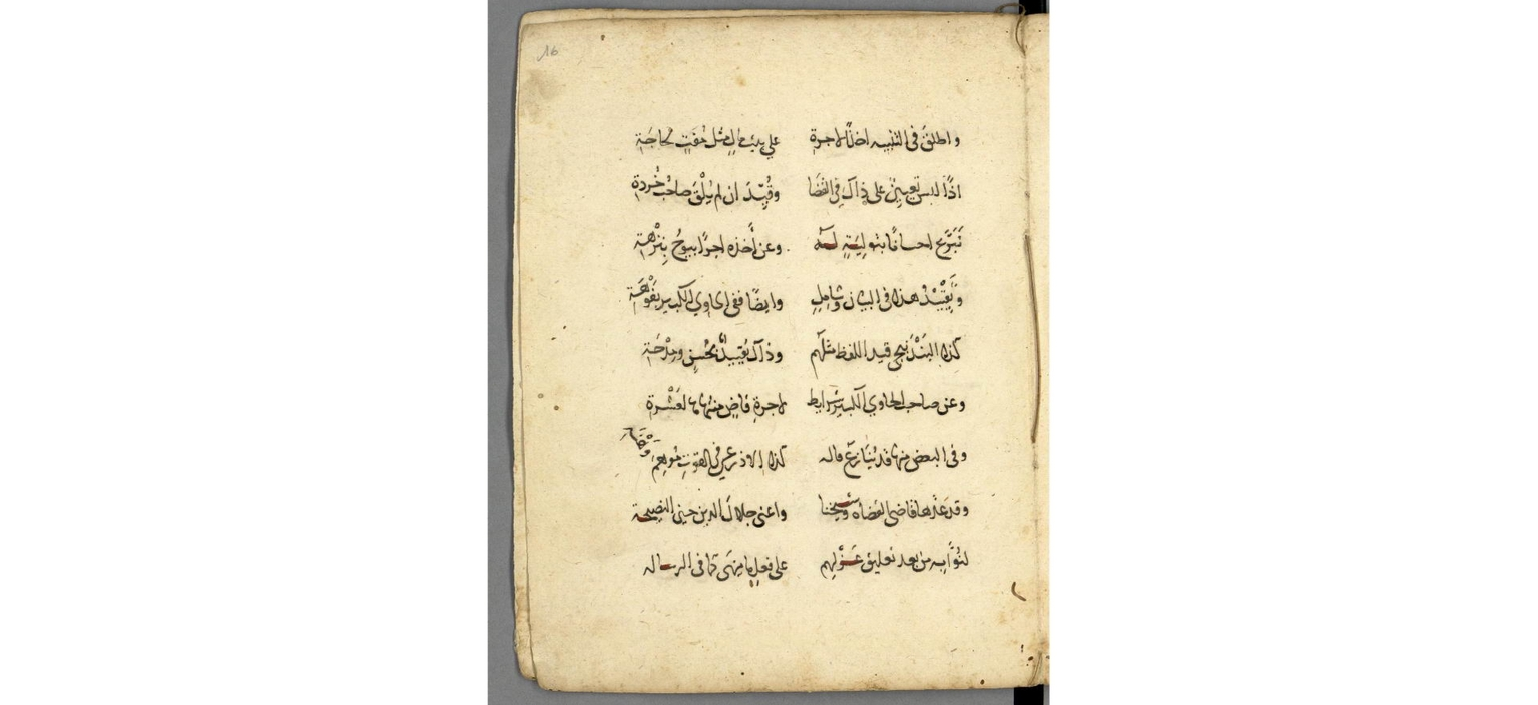 16
واطلق في التنبيه اخذًا لاجرة على بيت مال مثل خفت لحاجة
اذا ليس تعيين على ذاك في القضا وقُيّدَ ان لم يَلْقَ صاحب خُردة
تَبَرّع احسانًا بتوليةٍ له وعن أخذه اجرًا يبوحُ بنزهة
وتَقْيِيْدُ هذا في البيان وشامل وايضًا ففي الحاوي الكبير بفَوْهَة
كذا البَنْدَنيجي قيد اللفظ مثلهم وذاك تقييدٌ بحُسنٍ ومِدْحَة
وعن صاحب الحاوي الكبير شرايط لاجرة قاضٍ منتهاها لعَشْرة
وفي البعض منها قد تنازع قاله كذا الاذرعي في القوت
وقد عدّها قاضي القضاة وشيخنا واعني جلال الدين حين النصيحة
لنُوّابه من بعد تعليق عَزْلهم على فعل ما ينهى كما في الرساله